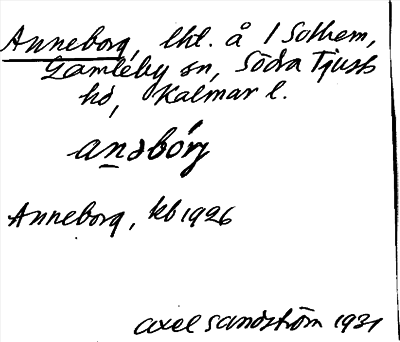 Anneborg, lht. å 1 Solhem,
Gamleby sn, Södra Tjusts
hd, Kalmar l.
anəbórj
Anneborg, kb 1926
Axel Sandström 1931